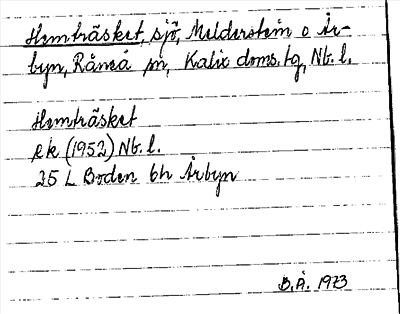 Hemträsket, sjö, Melderstein o År-
byn, Råneå sn, Kalix doms.tg, Nb.l.
Hemträsket
ek (1952) Nb.l.
25 L Boden bh Årbyn
B.Å. 1973